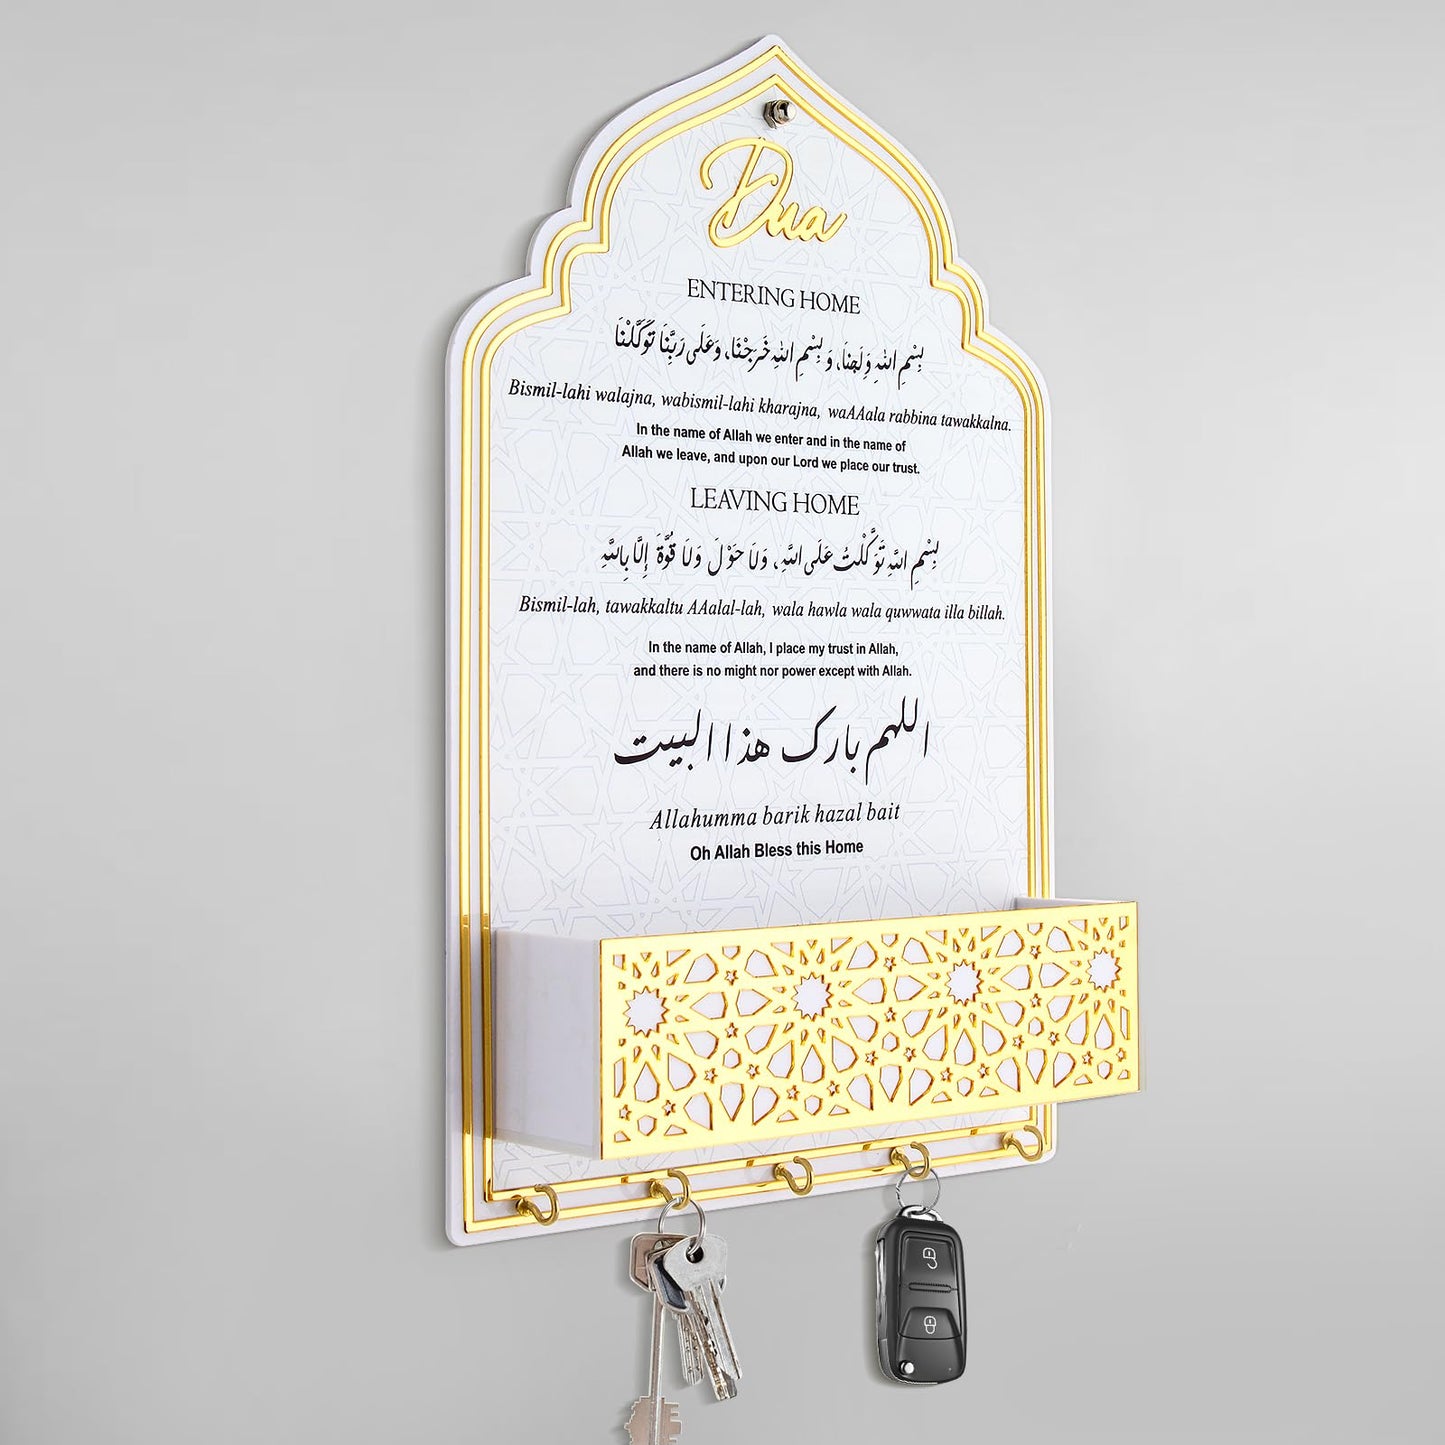 Dua
ENTERING HOME
بِسْمِ اللهِ وَلَجْنَا، وَ بِسْمِ اللهِ خَرَجْنَا، وَعَلَى رَبِّنَا تَوَكَّلْنَا
Bismil-lahi walajna, wabismil-lahi kharajna, waAAala rabbina tawakkalna.
In the name of Allah we enter and in the name of
Allah we leave, and upon our Lord we place our trust.
LEAVING HOME
بِسْمِ اللَّهِ تَوَكَّلْتُ عَلَى اللَّهِ، وَلَا حَوْلَ وَلَا قُوَّةَ إِلَّا بِاللَّهِ
Bismil-lah, tawakkaltu AAalal-lah, wala hawla wala quwwata illa billah.
In the name of Allah, I place my trust in Allah,
and there is no might nor power except with Allah.
اللهم بارك هذا البيت
Allahumma barik hazal bait
Oh Allah Bless this Home